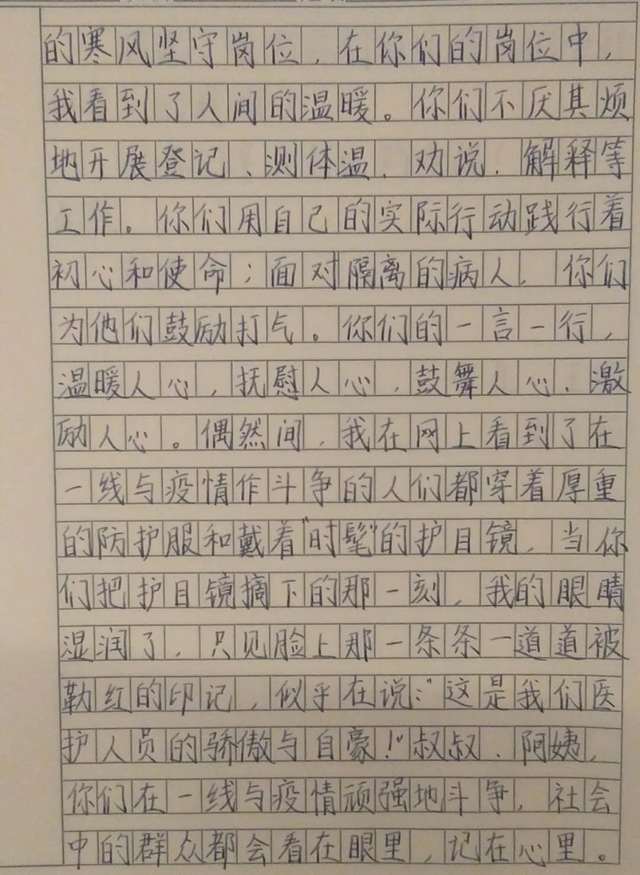 的寒风坚守岗位，在你们的岗位中，
我看到了人间的温暖。你们不厌其烦
地开展登记、测体温、劝说、解释等
工作。你们用自己的实际行动践行着
初心和使命；面对隔离的病人，你们
为他们鼓励打气。你们的一言一行，
温暖人心，抚慰人心，鼓舞人心，激
励人心。偶然间，我在网上看到了在
一线与疫情作斗争的人们都穿着厚重
的防护服和戴着"时髦"的护目镜，当你
们把护目镜摘下的那一刻，我的眼睛
湿润了，只见脸上那一条条一道道被
勒红的印记，似乎在说："这是我们医
护人员的骄傲与自豪！"叔叔、阿姨，
你们在一线与疫情顽强地斗争，社会
中的群众都会看在眼里，记在心里。